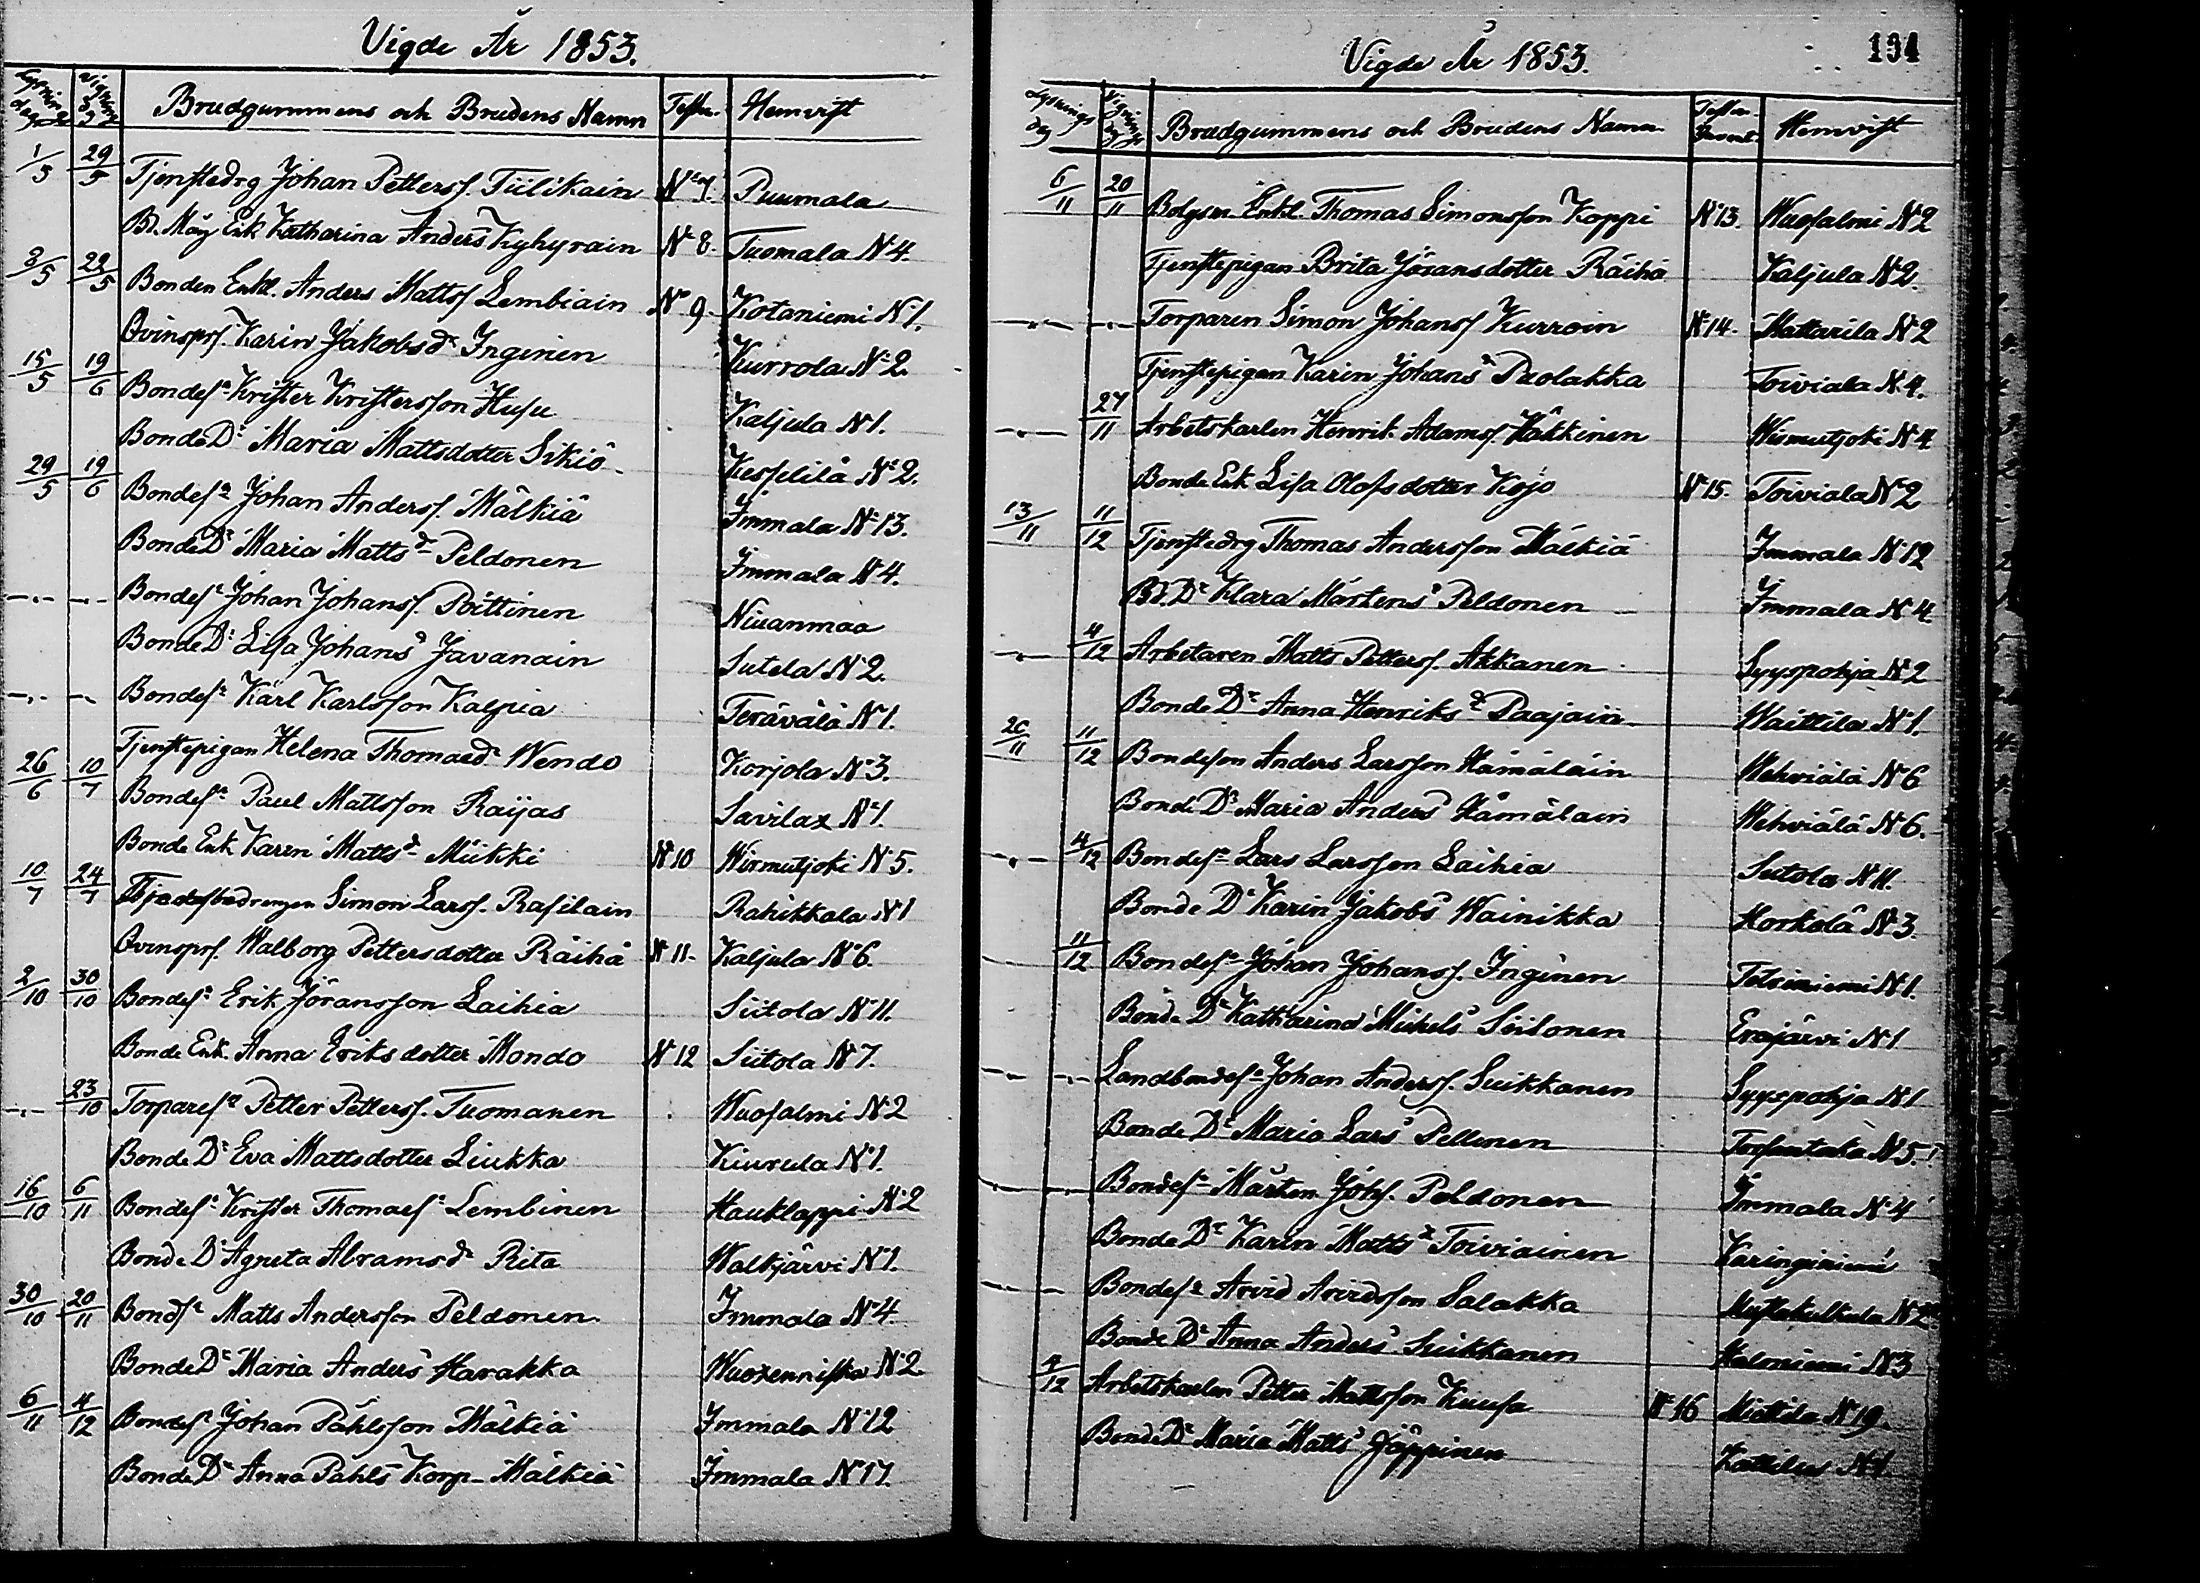 Vigde År 1853.
Lysnings dag Vignings dag Brudgummens och Brudens Namn Testm. Hemvist
1/5 29/5 Tjenstedrg Johan Petterss. Tiilikain N:o 7. Puumala
Bd. Måg Enk Katharina Anders Kyhyrain N:o 8. Tuomala N:4
8/5 22/5 Bonden Enkl. Anders Mattss Lembiain N:o 9. Kotaniemi N:1.
Qvinsprs. Karin Jakobsdr Inginen Kurrola N:2.
15/5 19/6 Bondesn Krister Kristersson Husu Kaljula N:1.
Bonde Dr Maria Mattsdotter Sikiö Kesselilä N:2.
29/5 19/6 Bondesn Johan Anderss. Mälkiä Immala N:13.
Bonde Dr Maria Mattsdr Peldonen Immala N:4.
—.— —.— Bondesn Johan Johanss. Pöittinen Niuanmaa
Bonde Dr Lisa Johansd Javanain Sutela N:2.
—.— — Bondesn Karl Karlsson Kalpia Terävälä N:1.
Tjenstepigan Helena Thomaedr Wendo Korjola N:3.
26/6 10/7 Bondesn Paul Mattsson Raijas Savilax N:1.
Bonde Enk Karin Mattsdr Miikki N:10 Wirmutjoki N:5.
10/7 24/7 Simon Larss. Rasilain Rahikkala N:1
Qvinsprs. Walborg Pettersdotter Räihä N:11. Kaljula N:6.
2/10 30/10 Bondesn Erik Jöransson Laihia Siitola N:11.
Bonde Enk. Anna Eriksdotter Mondo N:12 Siitola N:7.
—.— 23/10 Torparesn Petter Petterss. Tuomanen Wuosalmi N:2
Bonde Dr Eva Mattsdotter Liukka Kiurula N:1.
16/10 6/11 Bondesn Krister Thomaesn Lembinen Hauklappi N:2
Bonde Dr Agneta Abramsdr Rita Walkjärvi N:1.
30/10 20/11 Bondsn Matts Andersson Peldonen Immala N:4.
Bonde Dr Maria Andersd Harakka Wuoxenniska N:2.
6/11 4/12 Bondesn Johan Påhlsson Mälkiä Immala N:12
Bonde Dr Anna Påhls Korp-Mälkiä Immala N:17.
Vigde År 1853.
134
Lysnings dag Vignings dag Brudgummens och Brudens Namn Hemvist
6/11 20/11 Enkl. Thomas Simonsson Koppi N:13. Wuosalmi N:2
Tjenstepigan Brita Jöransdotter Räihä Kaljula N:2.
—.— —.— Torparen Simon Johanss Kurroin N:14. Mattarila N:2
Tjenstepigan Karin Johansd Puolakka Toiviala N:4.
—.— 27/11 Arbetskarlen Henrik Adamss. Häkkinen Wirmutjoki N:4
Bonde Enk Lisa Olofsdotter Kojo N:15. Toiviala N:2
13/11 11/12 Tjenstedrg Thomas Andersson Mälkiä Immala N:12
Bd. Dr Klara Mårtensd Peldonen Immala N:4
—.— 4/12 Arbetaren Matts Petterss. Akkanen Syyspohja N:2
Bonde Dr Anna Henriksdr Paajain Waittila N:1.
20/11 11/12 Bondeson Anders Larsson Hämäläin Wehviälä N:6
Bonde Dr Maria Andersd Hämäläin Wehviälä N:6.
—.— 4/12 Bondesn Lars Larsson Laihia Siitola N:11.
Bonde Dr Karin Jakobsd Wainikka Horkolä N:3.
11/12 Bondesn Johan Johanss. Inginen N:1.
Bonde Dr Katharina Mickelsd Siitonen Eräjärvi N:1
—.— —.— Landbondesn Johan Anderss. Suikkanen Syyspohja N:1
Bonde Dr Maria Larsd Pellinen N:5.
—.— —.— Bondesn Mårten Johs. Peldonen Immala N:4
Bonde Dr Karin Mattsdr Toiviainen Karinginiemi
— — Bondesn Arvid Arvidsson Salakka N:2
Bonde Dr Anna Andersd Suikkanen N:3
4/12 Arbetskarlen Petter Mattsson Kuusa N:16 Miettilä N:19.
Bonde Dr Maria Mattsd Jäppinen Kattelus N:1